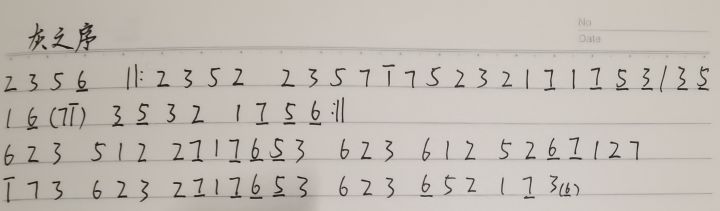 No
Date
灰之序
2 3 5 6̲ ‖: 2 3 5 2 2 3 5 7 1̅ 7 5 2 3 2 1 7̲ 1 7̲ 5̲ 3̲ / 3̲ 5̲
1 6̲ (7̲1̅) 3̲ 5̲ 3 2 1 7̲ 5̲ 6̲ :‖
6 2 3 5 1 2 2 7̲ 1 7̲ 6̲ 5̲ 3 6 2 3 6 1 2 5 2 6̲ 7̲ 1 2 7
1̅ 7 3 6 2 3 2 7̲ 1 7̲ 6̲ 5̲ 3 6 2 3 6̲ 5 2 1 7̲ 3(6̲)